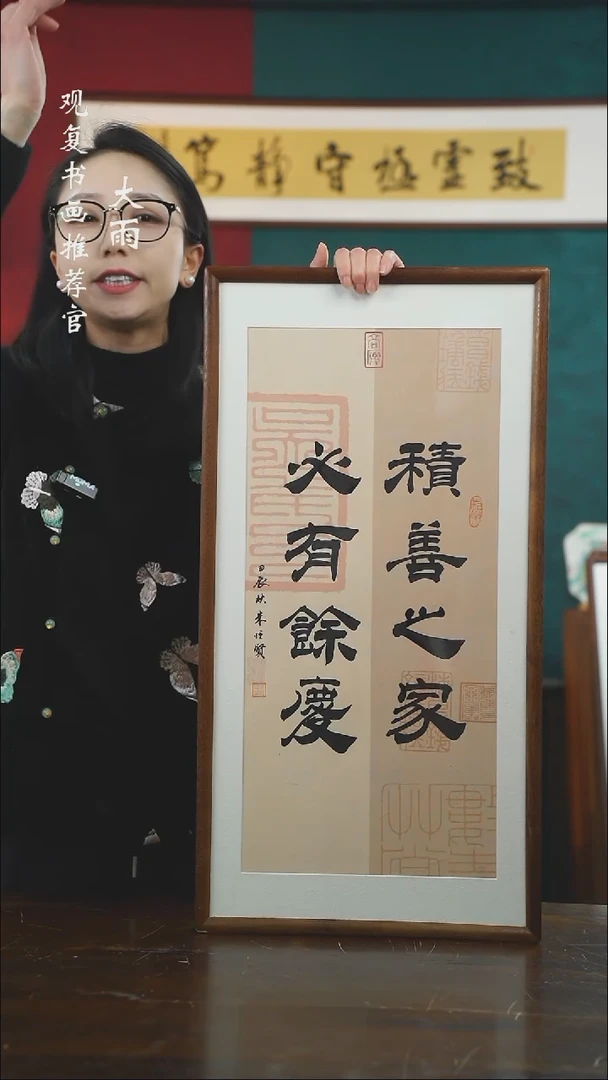 观复书画推荐官
大雨
致虚極守静篤
積善之家
必有餘慶